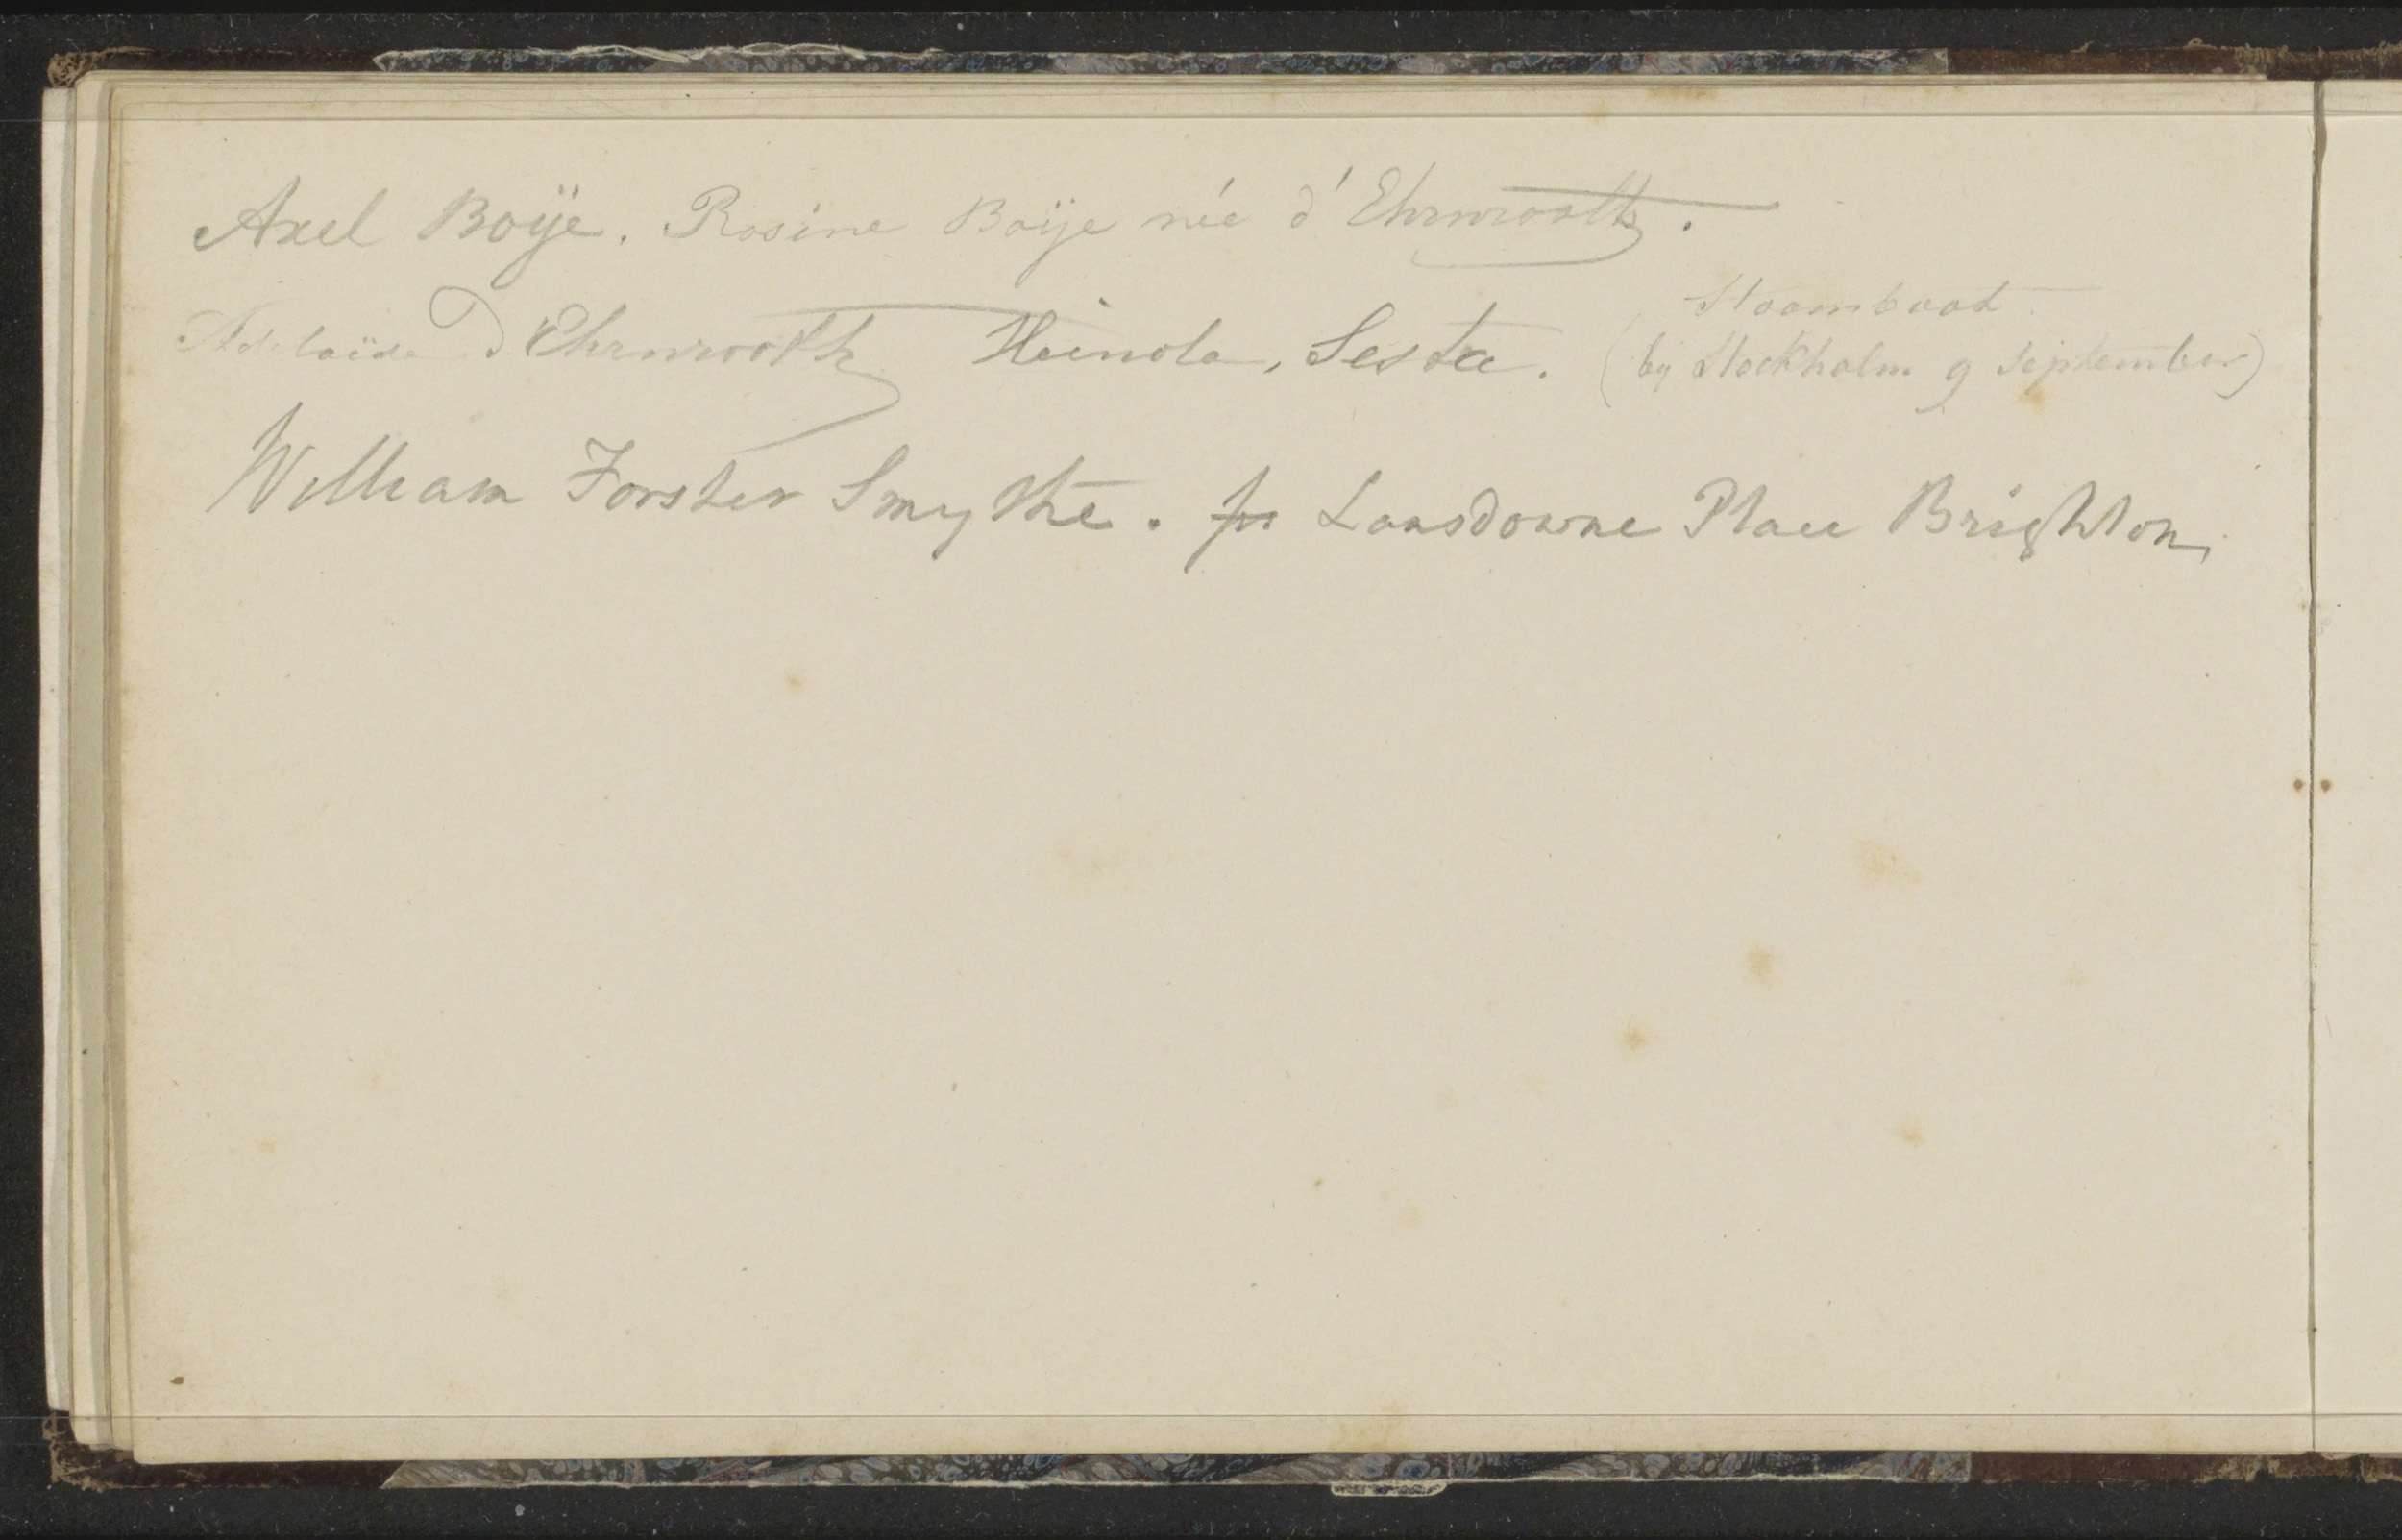 Axel Boÿe. Rosine Boÿe née d'Ehrnrooth.
Stoomboot
Adelaïde D'Ehrnrooth Heinola, Sesta. (bij Stockholm 9 September)
William Forster Smythe. Lansdowne Place Brighton